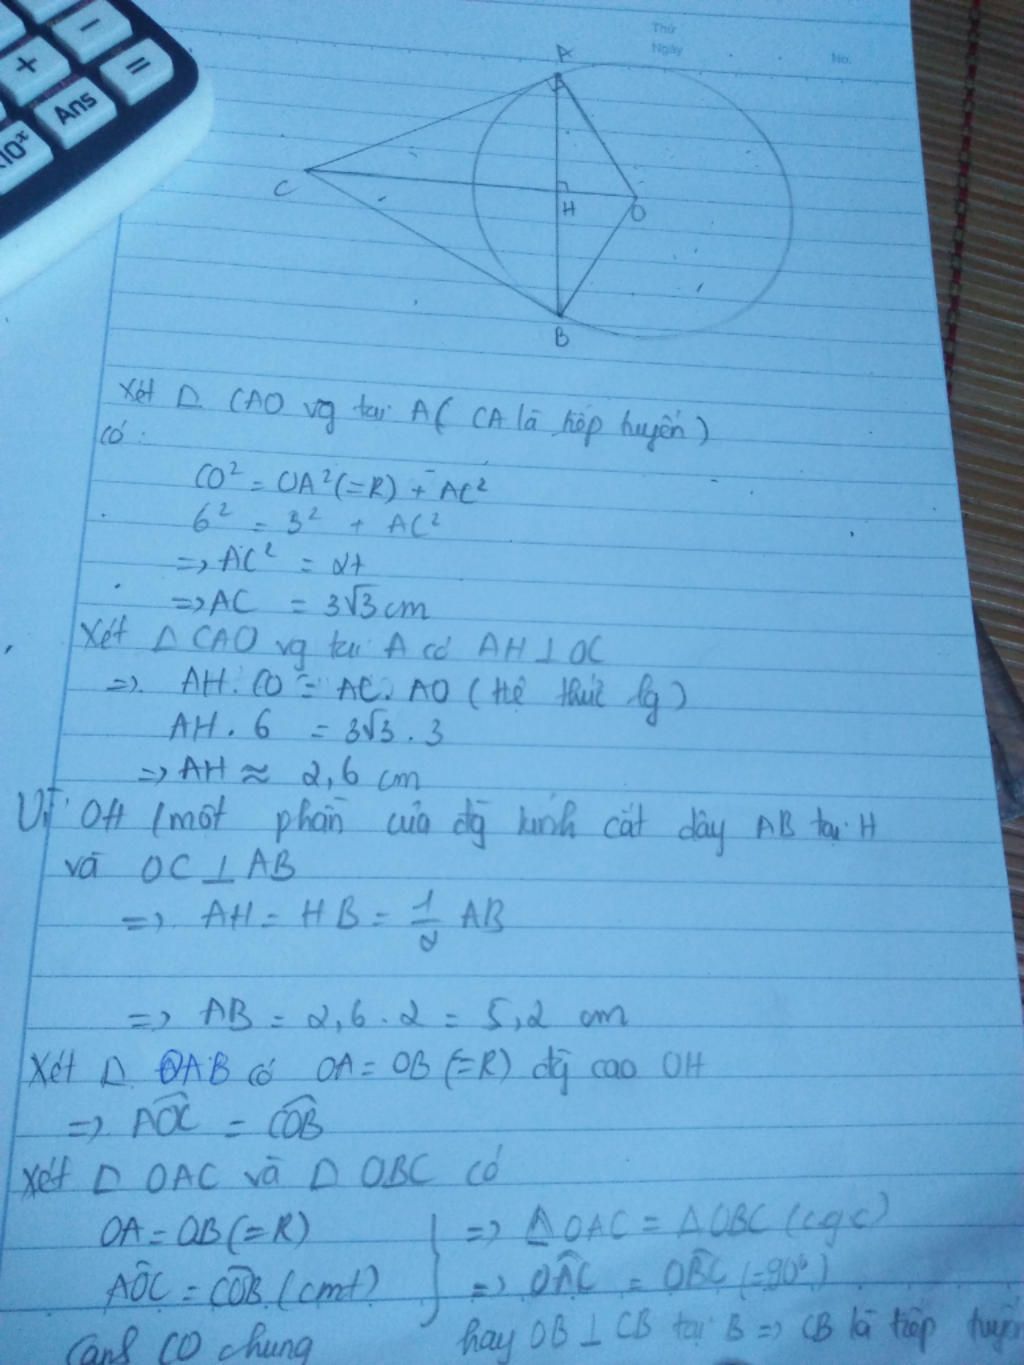 −
+
=
Ans
10ˣ
Thứ
Ngày
No.
A
C
H
O
B
Xét Δ CAO vg tại A( CA là tiếp tuyến)
có:
CO² = OA²(=R) + AC²
6² = 3² + AC²
=> AC² = 27
=> AC = 3√3 cm
Xét Δ CAO vg tại A có AH ⊥ OC
=> AH. CO = AC. AO (Hệ thức lg)
AH . 6 = 3√3 . 3
=> AH ≈ 2,6 cm
Vì OH (một phần của đg kính cắt dây AB tại H
và OC ⊥ AB
=> AH = HB = 1/2 AB
=> AB = 2,6 . 2 = 5,2 cm
Xét Δ OAB có OA = OB (=R) đg cao OH
=> AOC = COB
Xét Δ OAC và Δ OBC có
OA = OB (=R) } => Δ OAC = Δ OBC (cgc)
AOC = COB (cmt) => OAC = OBC (=90°)
cạnh CO chung hay OB ⊥ CB tại B => CB là tiếp tuyến